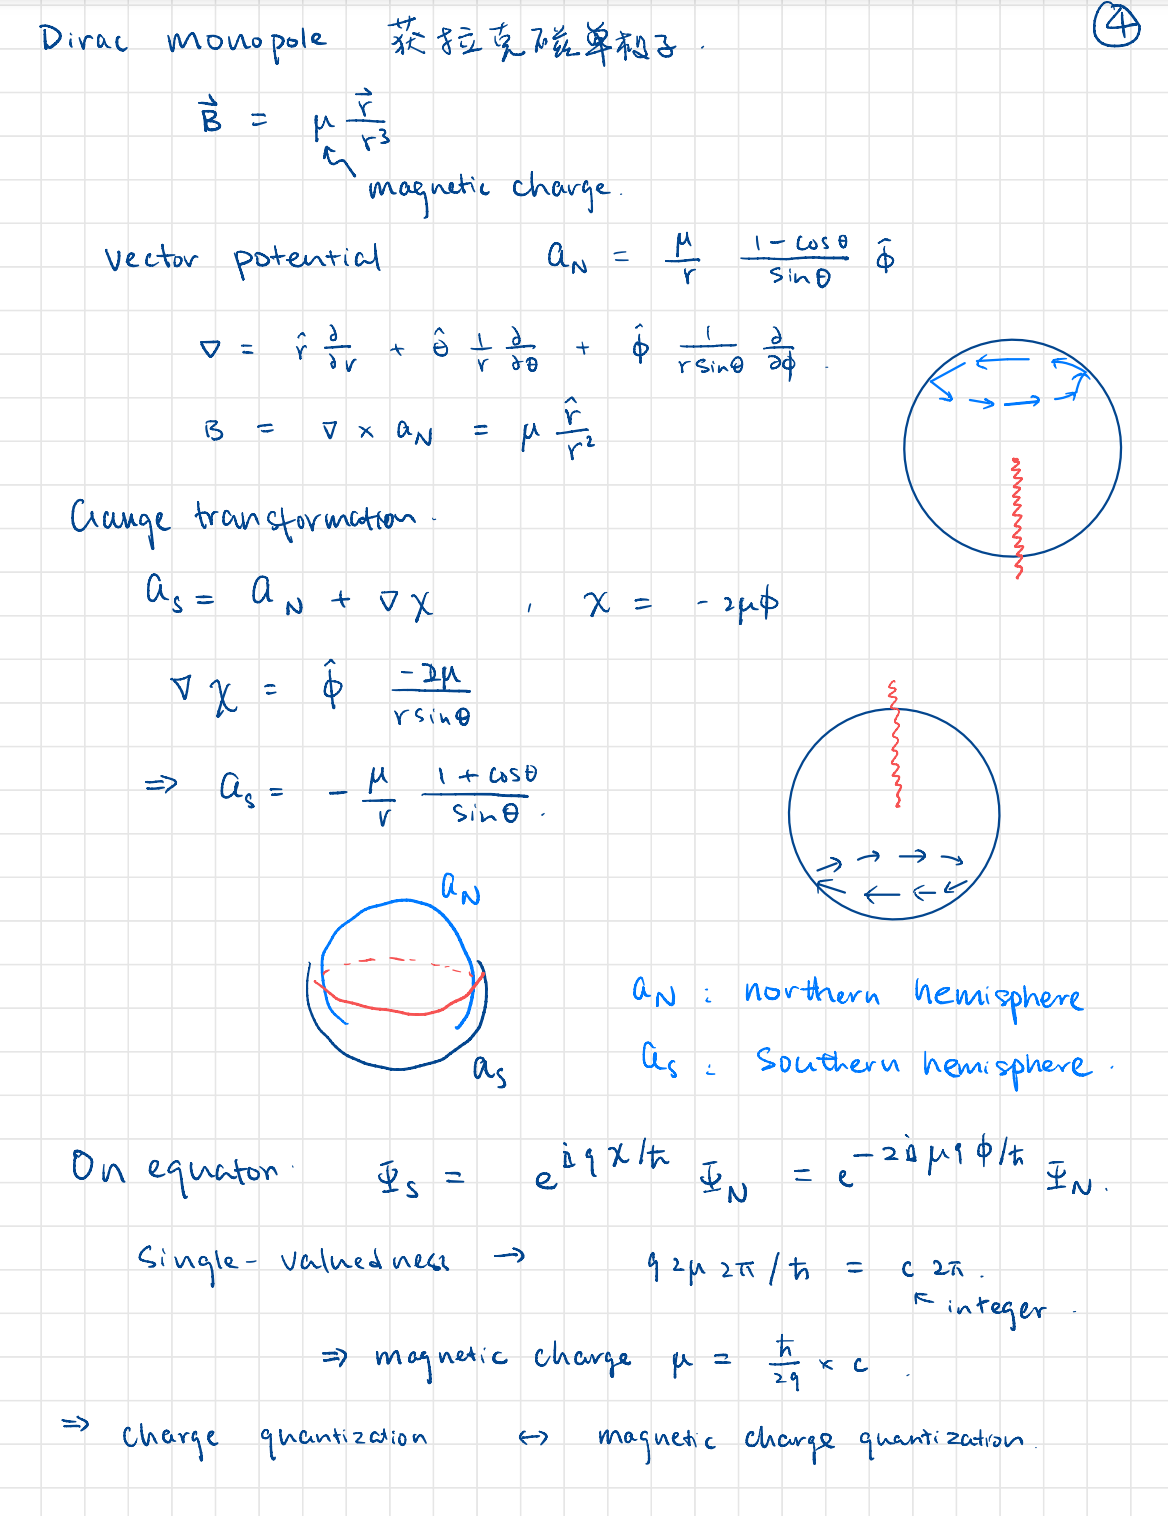 Dirac monopole 获拉克磁单极子. ④
B⃗ = μ r⃗/r³
magnetic charge.
vector potential a_N = μ/r (1-cosθ)/sinθ ϕ̂
∇ = r̂ ∂/∂r + θ̂ 1/r ∂/∂θ + ϕ̂ 1/(r sinθ) ∂/∂ϕ.
B = ∇ × a_N = μ r̂/r²
Gauge transformation.
a_s = a_N + ∇χ , χ = -2μϕ
∇χ = ϕ̂ -2μ/(r sinθ)
⇒ a_s = - μ/r (1+cosθ)/sinθ.
a_N
a_s
a_N : northern hemisphere
a_s : Southern hemisphere.
On equator. Ψ_S = e^{iqχ/ħ} Ψ_N = e^{-2iμqϕ/ħ} Ψ_N.
Single-valuedness → q 2μ 2π/ħ = c 2π.
integer.
⇒ magnetic charge μ = ħ/2q × c.
⇒ charge quantization ↔ magnetic charge quantization.